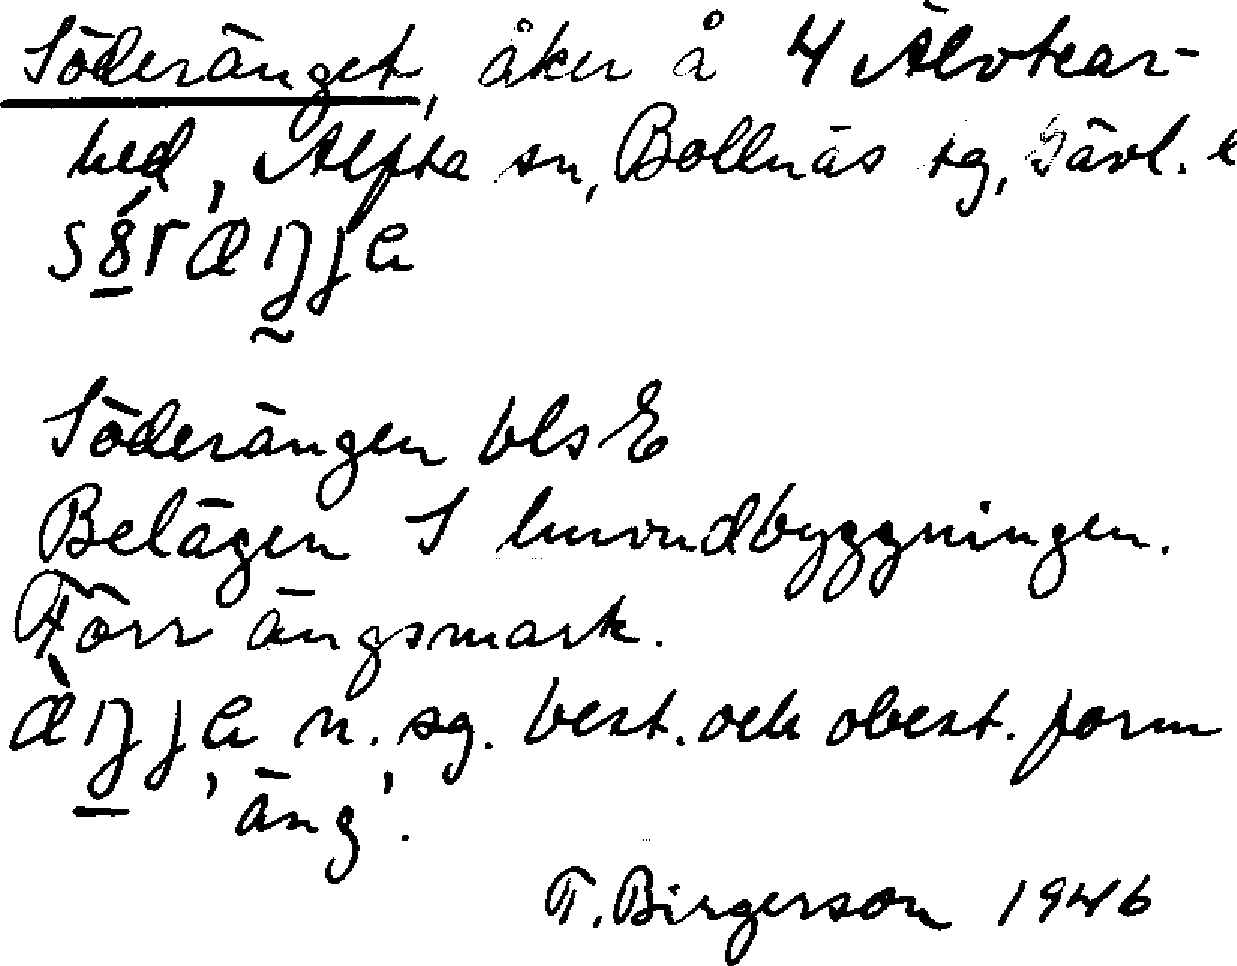 Söderänget, åker å 4 Älvkar-
hed, Alfta sn, Bollnäs tg, Gävl. l
Söderängen bls E
Belägen S huvudbyggningen.
Förr ängsmark.
n. sg. best. och obest. form
'äng'.
T. Birgerson 1946